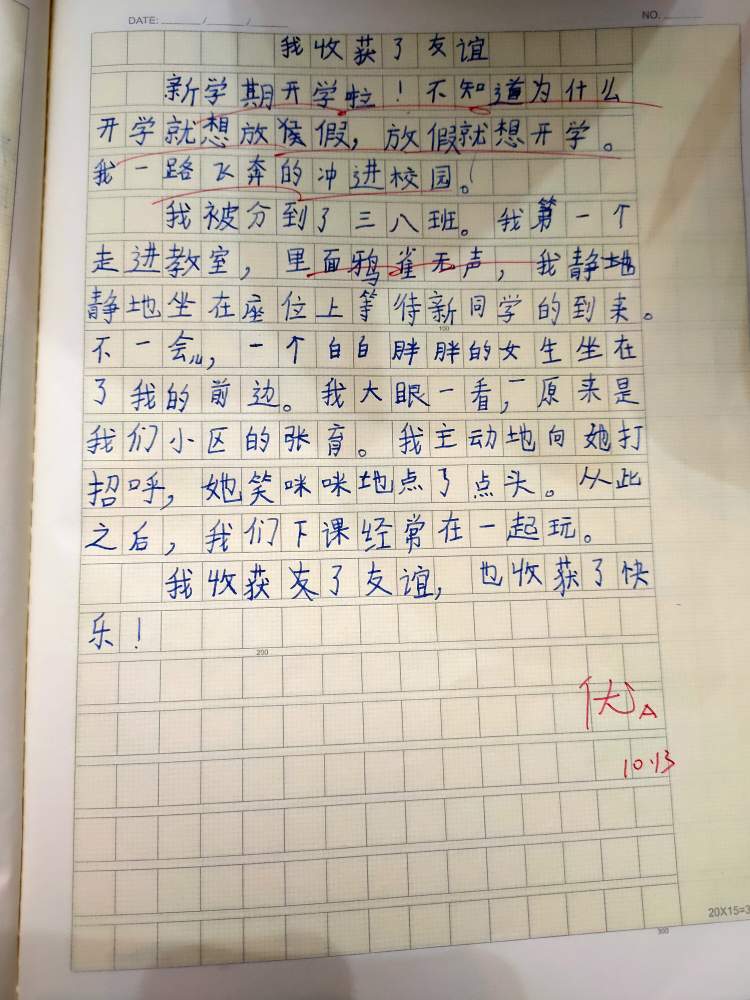 DATE: / /
NO.
我收获了友谊
新学期开学啦！不知道为什么
开学就想放假，放假就想开学。
我一路飞奔的冲进校园。
我被分到了三八班。我第一个
走进教室，里面鸦雀无声，我静地
静地坐在座位上等待新同学的到来。
100
不一会儿，一个白白胖胖的女生坐在
了我的前边。我大眼一看，原来是
我们小区的张育。我主动地向她打
招呼，她笑咪咪地点了点头。从此
之后，我们下课经常在一起玩。
我收获了友谊，也收获了快
乐！
200
优A
10.13
20X15=3
300